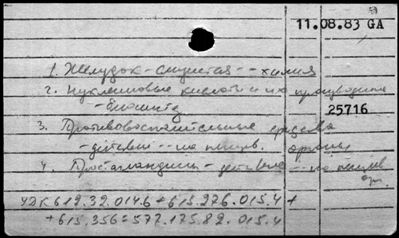 11.08.83 GA
1. Желудок - слизистая -- химия
2. Нуклеиновые кислоты и их производные
- биосинтез
25716
3. Противовоспалительные средства
- действие -- на пищев. органы
4. Простагландины - действие -- на пищев
орг.
УДК 612.32.014.6 + 615.276.015.4 +
+ 615.356:577.175.82.015.4